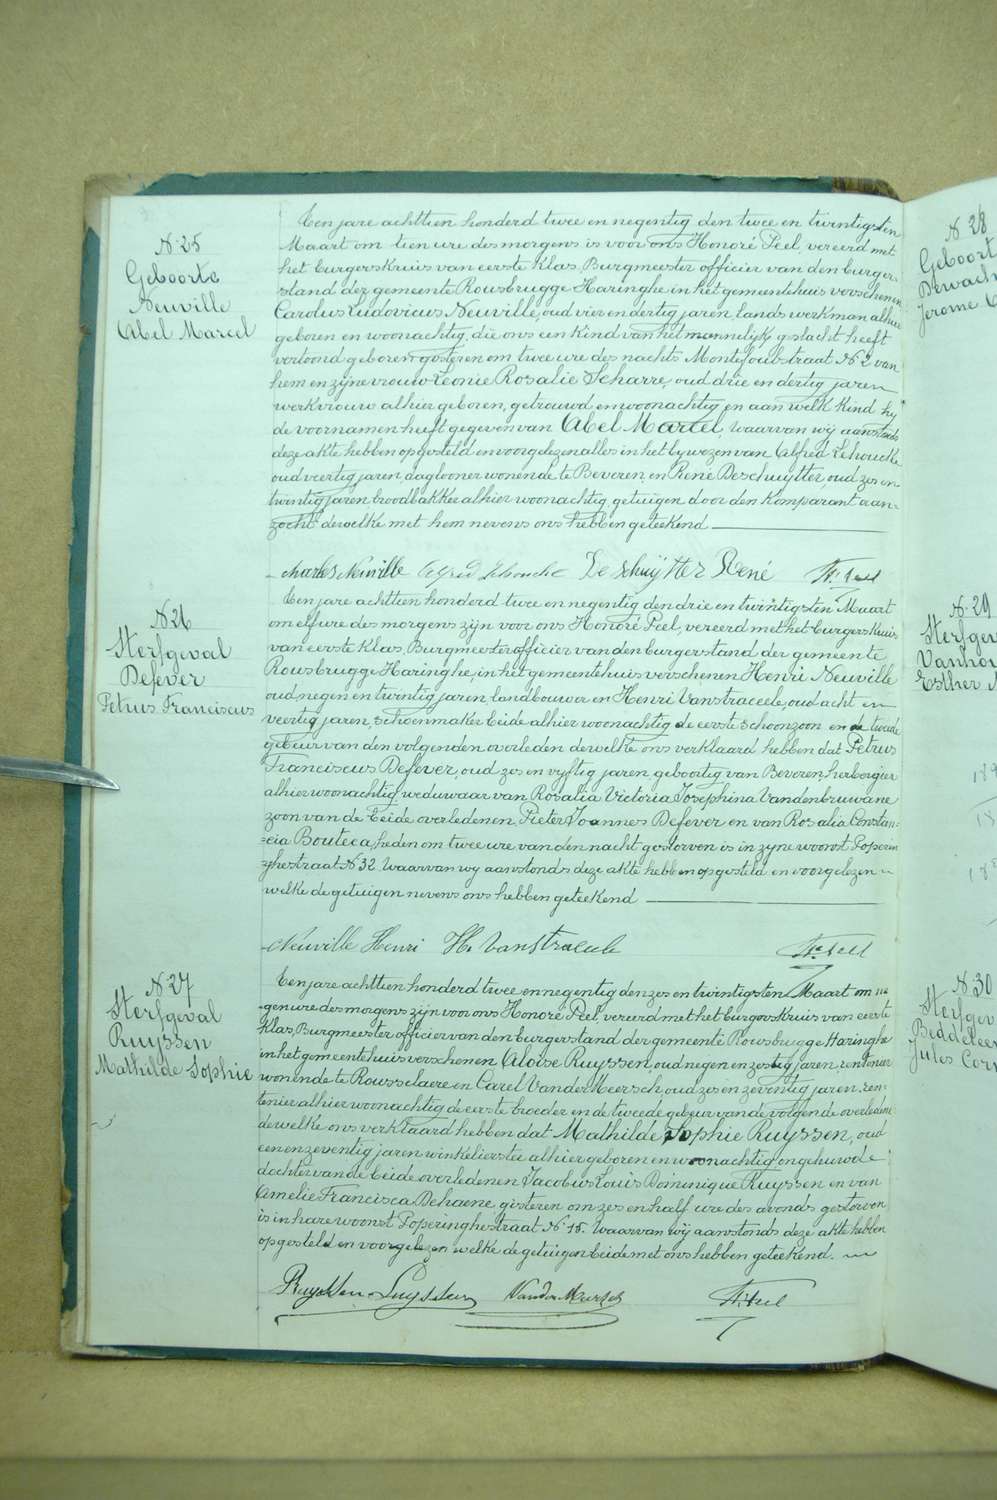 N 25
Geboorte
Neuville
Abel Marcel
Een jare achttien honderd twee en negentig den twee en twintigsten
Maart om tien ure des morgens is voor ons Honoré Peel, vereerd met
het burgerskruis van eerste klas, Burgmeester officier van den burger-
stand der gemeente Rousbrugge Haringhe in het gemeentehuis verschenen
Carolus Ludovicus Neuville, oud vier en dertig jaren, lands werkman alhier
geboren en woonachtig, die ons een kind van het mannelijk geslacht heeft
vertoond geboren gisteren om twee ure des nachts Montefoubstraat N 2 van
hem en zijne vrouw Leonie Rosalie Scharre, oud drie en dertig jaren
werkvrouw alhier geboren, getrouwd en woonachtig en aan welk kind hij
de voornamen heeft gegeven van Abel Marcel, waarvan wij aanstonds
deze akte hebben opgesteld en voorgelezen alles in het bijwezen van Alfred Lehoucke
oud veertig jaren, daglooner wonende te Beveren, en René Deschuytter, oud zes en
twintig jaren broodbakker alhier woonachtig getuigen door den komparant aan-
zocht dewelke met hem nevens ons hebben geteekend
Charles Neuville Alfred Lehoucke De Schuytter René H. Peel
N 26
Sterfgeval
Defever
Petrus Franciscus
Een jare achttien honderd twee en negentig den drie en twintigsten Maart
om elf ure des morgens zijn voor ons Honoré Peel, vereerd met het burgerskruis
van eerste klas, Burgmeester officier van den burgerstand der gemeente
Rousbrugge Haringhe, in het gemeentehuis verschenen Henri Neuville
oud negen en twintig jaren, landbouwer en Henri Vanstraceele, oud acht en
veertig jaren schoenmaker beide alhier woonachtig de eerste schoonzoon en de tweede
gebuur van den volgenden overleden dewelke ons verklaard hebben dat Petrus
Franciscus Defever, oud zes en vyftig jaren, geboortig van Beveren, herbergier
alhier woonachtig, weduwaar van Rosalia Victoria Josephina Vandenbruwane
zoon van de beide overledenen Pieter Joannes Defever en van Rosalia Constan-
=cia Bouteca, heden om twee ure van den nacht gestorven is in zyne woonst Poperin
=ghestraat N 32. Waarvan wy aanstonds deze akte hebben opgesteld en voorgelezen
welke de getuigen nevens ons hebben geteekend
Neuville Henri H. Vanstraceele H. Peel
N 27
Sterfgeval
Ruyssen
Mathilde Sophie
Een jare achttien honderd twee en negentig den zes en twintigsten Maart om ne
=gen ure des morgens zijn voor ons Honoré Peel, vereerd met het burgerskruis van eerste
klas, Burgmeester officier van den burgerstand der gemeente Rousbrugge Haringhe
in het gemeentehuis verschenen Aloise Ruyssen, oud negen en zestig jaren, rentenier
wonende te Rousselaere en Carel Vander Meersch, oud zes en zeventig jaren, ren-
tenier alhier woonachtig de eerste broeder en de tweede gebuur van de volgende overledene
dewelke ons verklaard hebben dat Mathilde Sophie Ruyssen, oud
een en zeventig jaren winkelierstee alhier geboren en woonachtig ongehuwde
dochter van de beide overledenen Jacobus Louis Dominique Ruyssen en van
Amelie Francisca Dehaene, gisteren om zes en half ure des avonds gestorven
is in hare woonst Poperinghestraat N 15. Waarvan wij aanstonds deze akte hebben
opgesteld en voorgelezen welke de getuigen beide met ons hebben geteekend.
Ruyssen Vander Meersch H. Peel
N 28
Geboort
Jerome
N 29
Sterfgev
Vanhou
Esther
N 30
Sterfgev
Beddeleer
Jules Cor